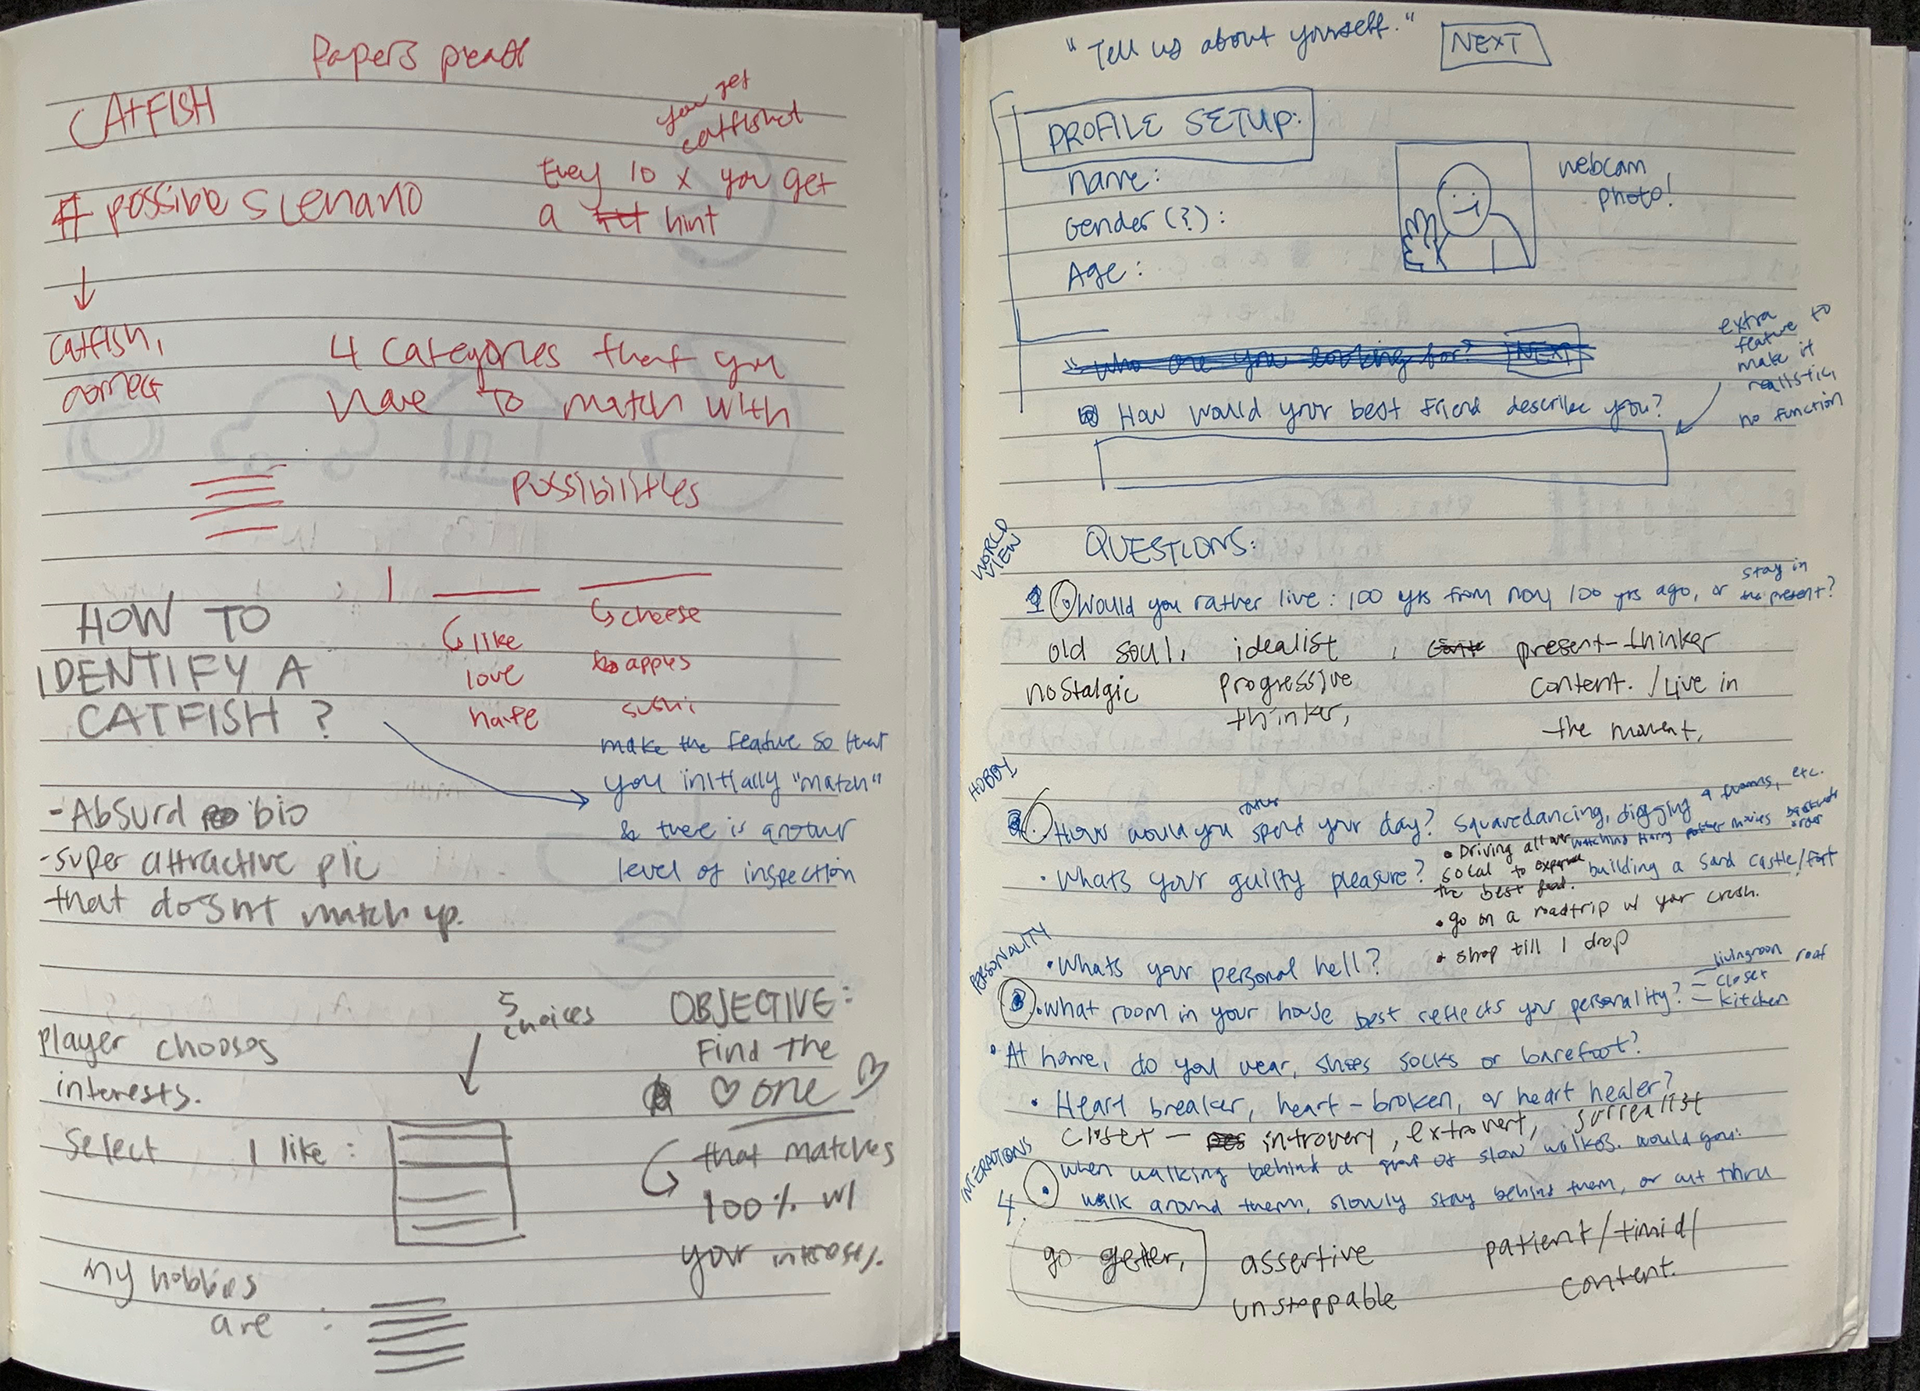 Papers
CATFISH
you get
catfished
# possible scenario
every 10 x you get
a hint
catfish,
correct
4 categories that you
have to match with
possibilities
I
like
love
hate
cheese
apples
sushi
HOW TO
IDENTIFY A
CATFISH?
make the feature so that
you initially "match"
& there is another
level of inspection
- Absurd bio
- super attractive pic
that doesnt match up.
5
choices
player chooses
interests.
select I like:
OBJECTIVE:
Find the
♡ one ♡
that matches
100% w/
your interests.
my hobbies
are :
"Tell us about yourself." NEXT
PROFILE SETUP:
name:
Gender (?):
Age:
webcam
photo!
"Who are you looking for? NEXT
extra
feature to
make it
realistic,
no function
How would your best friend describe you?
WORLD
VIEW
QUESTIONS:
1. Would you rather live: 100 yrs from now, 100 yrs ago, or stay in
the present?
old soul, idealist, present-thinker
nostalgic progressive content. / Live in
thinker, the moment,
HOBBY
How would you spend your day? squaredancing, digging 4 etc.
• Driving all over watching Harry potter movies backwards
order
• Whats your guilty pleasure? socal to experience building a sand castle/fort
the best food.
• go on a roadtrip w your crush.
• shop till I drop
PERSONALITY
• Whats your personal hell?
3. What room in your house best reflects your personality? – livingroom roof
– closet
– kitchen
• At home, do you wear, shoes socks or barefoot?
• Heart breaker, heart-broken, or heart healer?
closet – introvert, extrovert, surrealist
INTERACTIONS
4. When walking behind a group of slow walkers. would you:
walk around them, slowly stay behind them, or cut thru
go getter, assertive patient/timid/
unstoppable content.